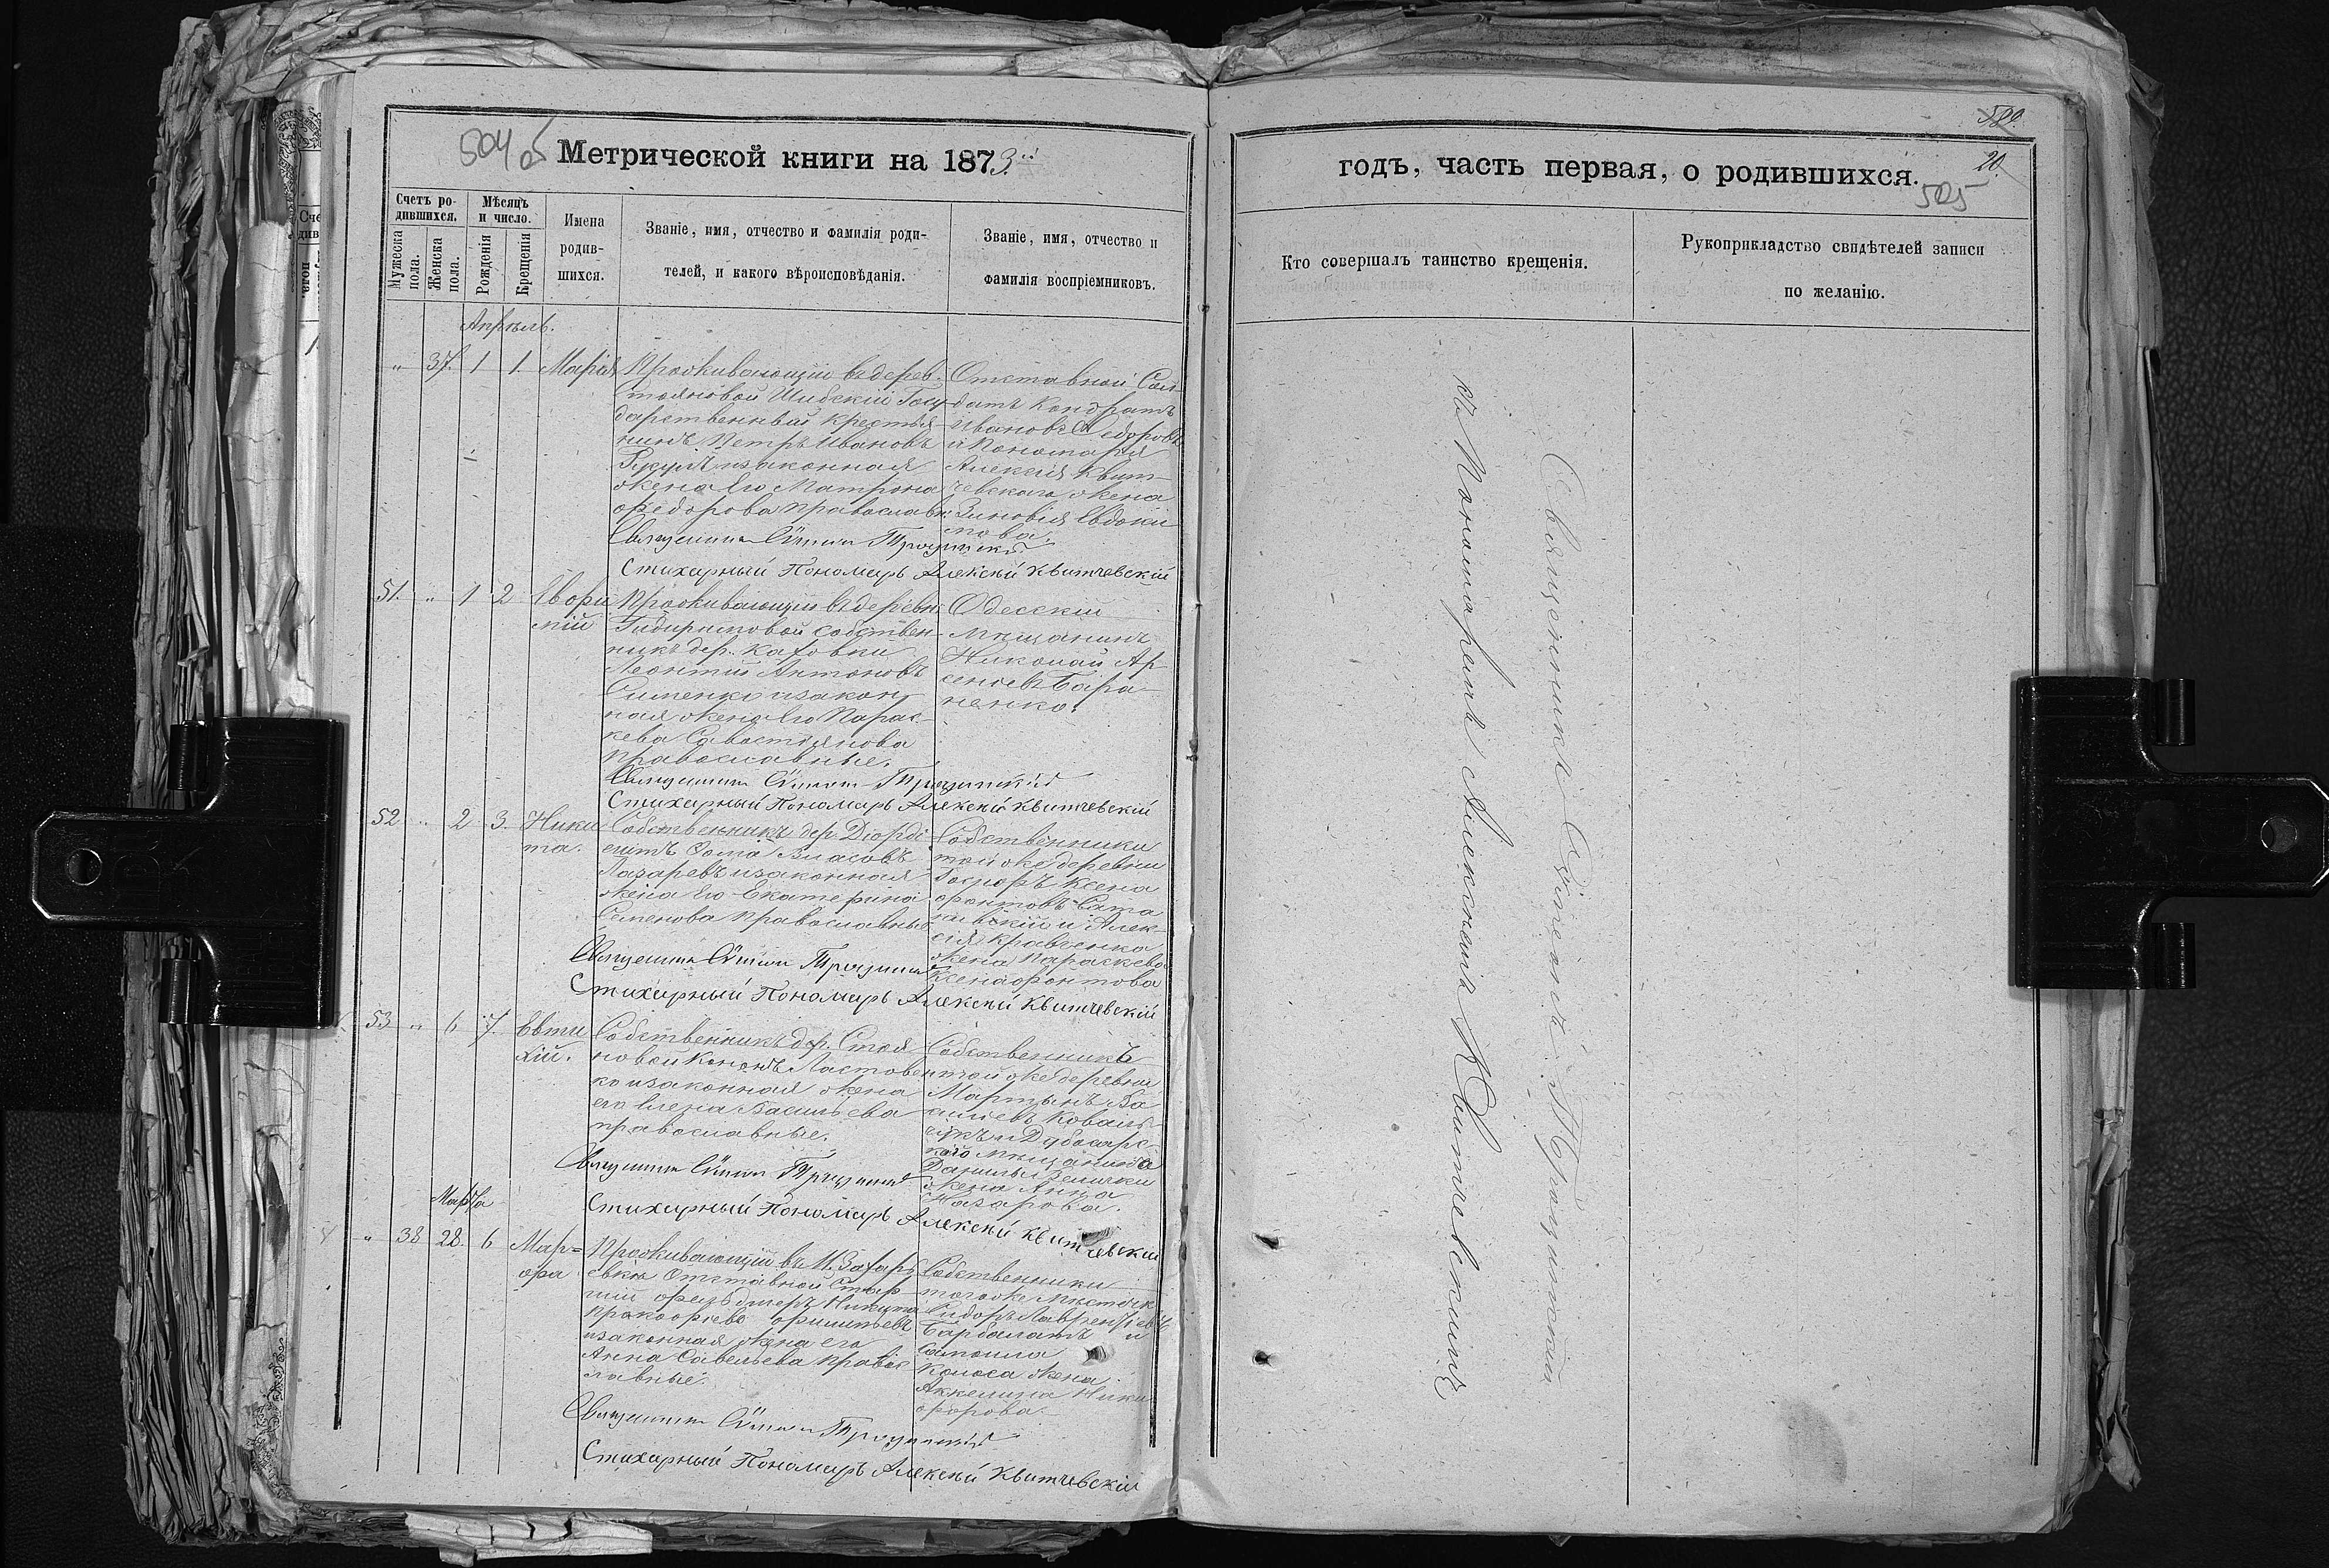 504 об
Метрической книги на 1873й
Счетъ ро-
дившихся.
Мѣсяцъ
и число.
Мужеска
пола.
Женска
пола.
Рожденія
Крещенія
Имена
родив-
шихся.
Званіе, имя, отчество и фамилія роди-
телей, и какого вѣроисповѣданія.
Званіе, имя, отчество и
фамилія воспріемниковъ.
Апрѣль.
" 37. 1 1. Марія
Проживающій въ дерев.
Стояновой Шибскій Госу
дарственный крестья
нинъ Петръ Ивановъ
изаконная
жена его Матрона
Ѳедорова православн:
Отставной Сол
датъ Кондратъ
Ивановъ Ѳедоровъ
и Пономаря
Алексія Квит-
чевскаго жена
Зиновія Евдоки
мова.
Священник Сѵмеон Трощинскій
Стихарный Пономарь Алексѣй Квитчевскій
51. " 1 2
Проживающій въ деревн.
собствен-
никъ дер. Каховки
Леонтій Антоновъ
изакон
ная жена его Парас-
кева Савостіянова
православные.
Одесскій
Мѣщанинъ
Николай Ар
сеніевъ Бара-
ненко.
Священник Сѵмеон Трощинскій
Стихарный Пономарь Алексѣй Квитчевскій
52 " 2 3. Ники
та.
Собственникъ дер.
Ѳома Власовъ
Лазаревъ изаконная
жена его Екатерина
Семенова православные
Собственники
той же деревни
Ксено
фонтовъ
и Алек-
сія Кравченко
жена Параскева
Ксенофонтова
Священник Сѵмеон Трощинскій
Стихарный Пономарь Алексѣй Квитчевскій
53 " 6 7. Евти
хій.
Собственникъ дер. Стоя
новой Кононъ Ластовен
ко изаконная жена
его Елена Васильева
православные.
Собственникъ
той же деревни
Мартынъ Ва
силіевъ Коваль
чукъ и Дубосарс
каго мѣщанина
Данила
жена Анна
Назарова.
Священник Сѵмеон Трощинскій
Стихарный Пономарь Алексѣй Квитчевскій
Марта
" 38 28. 6 Мар=
ѳа
Проживающій въ М. Захарь
евкѣ Отставной Стар
шій фельдшеръ Никита
Прокофіевъ
изаконная жена его
Анна Савельева правос
лавные.
Собственники
тогоже Мѣстечк
Сидоръ Лаврентіевъ
Барбалатъ и
Самоила
Колоса жена
Аккелина Ники
форова.
Священник Сѵмеон Трощинскій
Стихарный Пономарь Алексѣй Квитчевскій
годъ, часть первая, о родившихся.
20.
505
Кто совершалъ таинство крещенія.
Рукоприкладство свидѣтелей записи
по желанію.
Священникъ Сѵмеонъ Трощинскій
съ Пономаремъ Алексѣемъ Квитчевскимъ